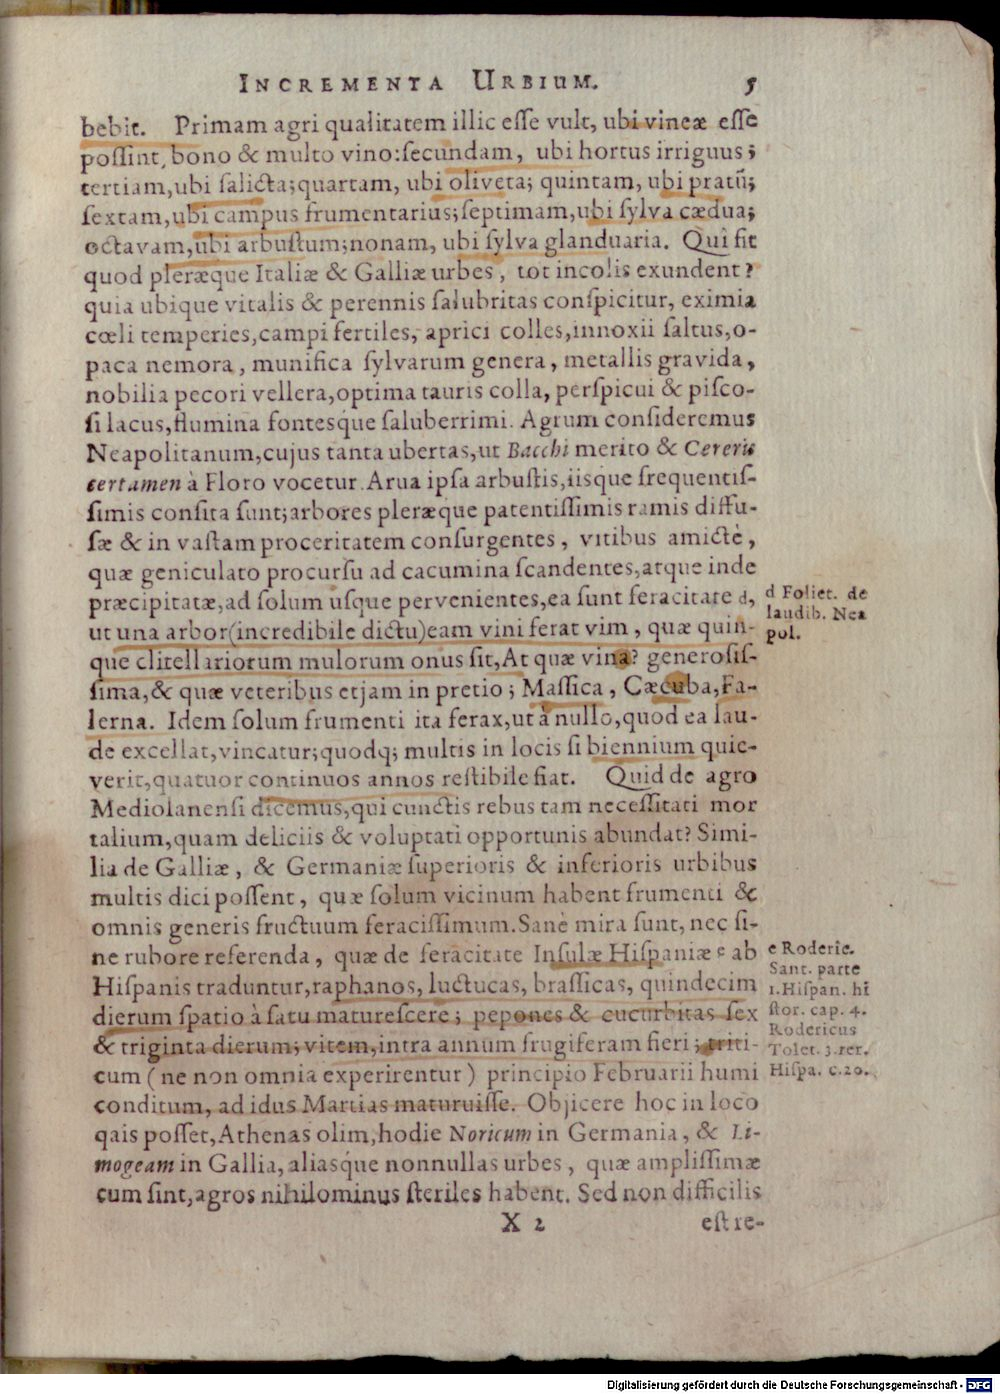 INCREMENTA URBIUM. 5
bebit. Primam agri qualitatem illic esse vult, ubi vineæ esse
possint, bono & multo vino: secundam, ubi hortus irriguus;
tertiam, ubi salicta; quartam, ubi oliveta; quintam, ubi pratũ;
sextam, ubi campus frumentarius; septimam, ubi sylva cædua;
octavam, ubi arbustum; nonam, ubi sylva glanduaria. Quî fit
quod pleræque Italiæ & Galliæ urbes, tot incolis exundent?
quia ubique vitalis & perennis salubritas conspicitur, eximia
cœli temperies, campi fertiles, aprici colles, innoxii saltus, o-
paca nemora, munifica sylvarum genera, metallis gravida,
nobilia pecori vellera, optima tauris colla, perspicui & pisco-
si lacus, flumina fontesque saluberrimi. Agrum consideremus
Neapolitanum, cujus tanta ubertas, ut Bacchi merito & Cereris
certamen à Floro vocetur. Arua ipsa arbustis, iisque frequentis-
simis consita sunt; arbores pleræque patentissimis ramis diffu-
sæ & in vastam proceritatem consurgentes, vitibus amictè,
quæ geniculato procursu ad cacumina scandentes, atque inde
præcipitatæ, ad solum usque pervenientes, ea sunt feracitate d,
ut una arbor (incredibile dictu) eam vini ferat vim, quæ quin-
que clitellariorum mulorum onus sit, At quæ vina? generosis-
sima, & quæ veteribus etjam in pretio; Massica, Cæcuba, Fa-
lerna. Idem solum frumenti ita ferax, ut à nullo, quod ea lau-
de excellat, vincatur; quodq; multis in locis si biennium quie-
verit, quatuor continuos annos restibile fiat. Quid de agro
Mediolanensi dicemus, qui cunctis rebus tam necessitati mor
talium, quam deliciis & voluptati opportunis abundat? Simi-
lia de Galliæ, & Germaniæ superioris & inferioris urbibus
multis dici possent, quæ solum vicinum habent frumenti &
omnis generis fructuum feracissimum. Sanè mira sunt, nec si-
ne rubore referenda, quæ de feracitate Insulæ Hispaniæ e ab
Hispanis traduntur, raphanos, luctucas, brassicas, quindecim
dierum spatio à satu maturescere; pepones & cucurbitas sex
& triginta dierum; vitem, intra annum frugiferam fieri; triti-
cum (ne non omnia experirentur) principio Februarii humi
conditum, ad idus Martias maturuisse. Objicere hoc in loco
qais posset, Athenas olim, hodie Noricum in Germania, & Li-
mogeam in Gallia, aliasque nonnullas urbes, quæ amplissimæ
cum sint, agros nihilominus steriles habent. Sed non difficilis
X 2 est re-
d Foliet. de
laudib. Nea
pol.
e Roderic.
Sant. parte
1. Hispan. hi
stor. cap. 4.
Rodericus
Tolet. 3. rer.
Hispa. c. 20.
Digitalisierung gefördert durch die Deutsche Forschungsgemeinschaft - DFG